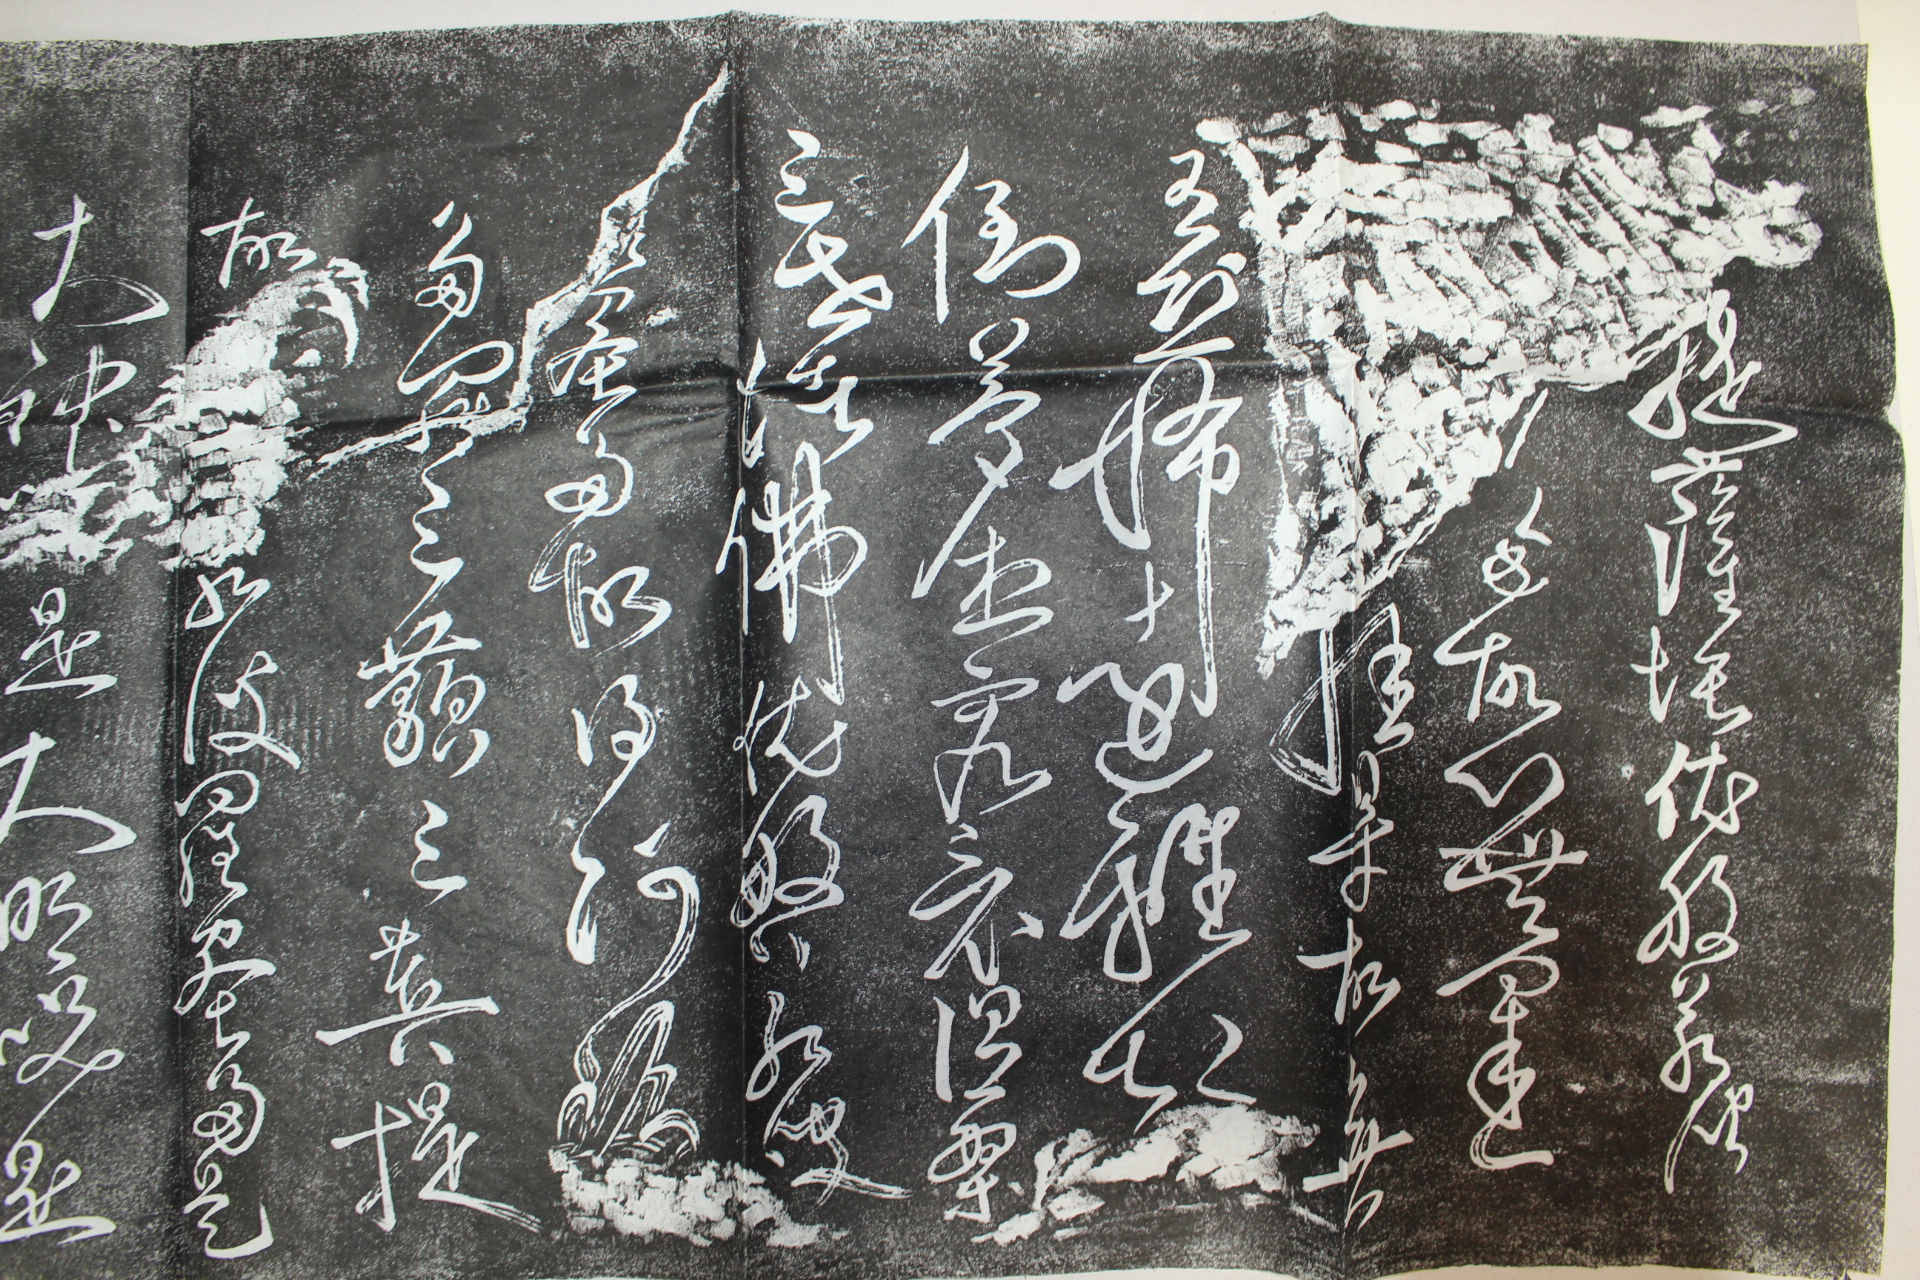 提薩埵依般若波
多故心無罣礙
罣礙故無
有恐怖遠離顛
倒夢想究竟涅槃
三世諸佛依般若波
蜜多故得阿耨
多羅三藐三菩提
故若波羅蜜多是
大神是大明咒是